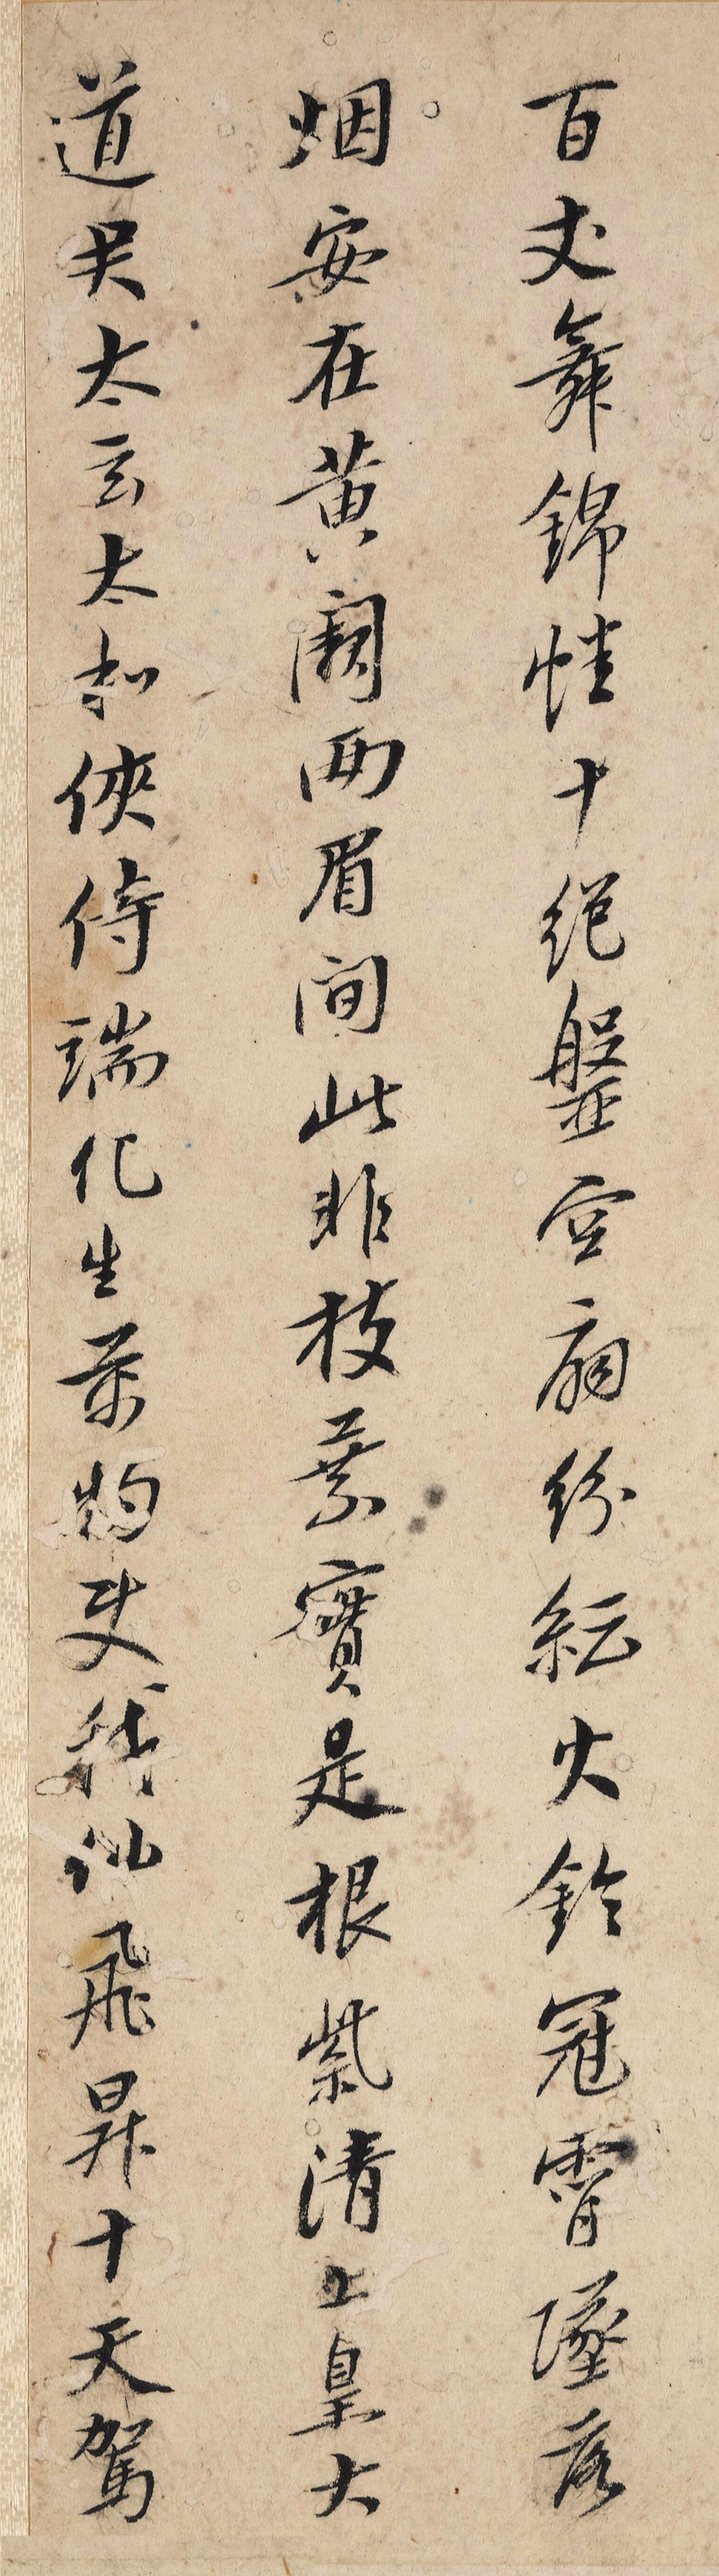 百丈舞錦幢十絕盤空扇紛紜火鈴冠霄墜落
烟安在黃闕兩眉間此非枝葉實是根紫清上皇大
道君太玄太和俠侍端化生萬物使我仙飛昇十天駕